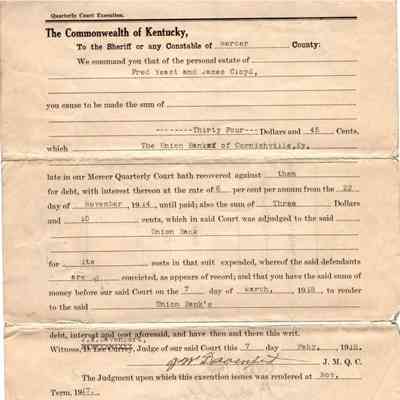 Quarterly Court Execution.
The Commonwealth of Kentucky,
To the Sheriff or any Constable of Mercer County:
We command you that of the personal estate of
Fred Yeast and James Cloyd,
you cause to be made the sum of
--------Thirty Four---- Dollars and 45 Cents,
which The Union Bank of Cornishville, Ky.
late in our Mercer Quarterly Court hath recovered against them
for debt, with interest thereon at the rate of 6 per cent per annum from the 22
day of November, 1914, until paid; also the sum of Three Dollars
and 10 cents, which in said Court was adjudged to the said
Union Bank
for its costs in that suit expended, whereof the said defendants
are convicted, as appears of record; and that you have the said sums of
money before our said Court on the 7 day of March, 1918, to render
to the said Union Bank's
debt, interest and cost aforesaid, and have then and there this writ.
J.W. Davenport,
Witness, Judge of our said Court this 7 day Feby, 1918.
J W Davenport J. M. Q. C.
The Judgment upon which this execution issues was rendered at Nov.
Term, 1917.